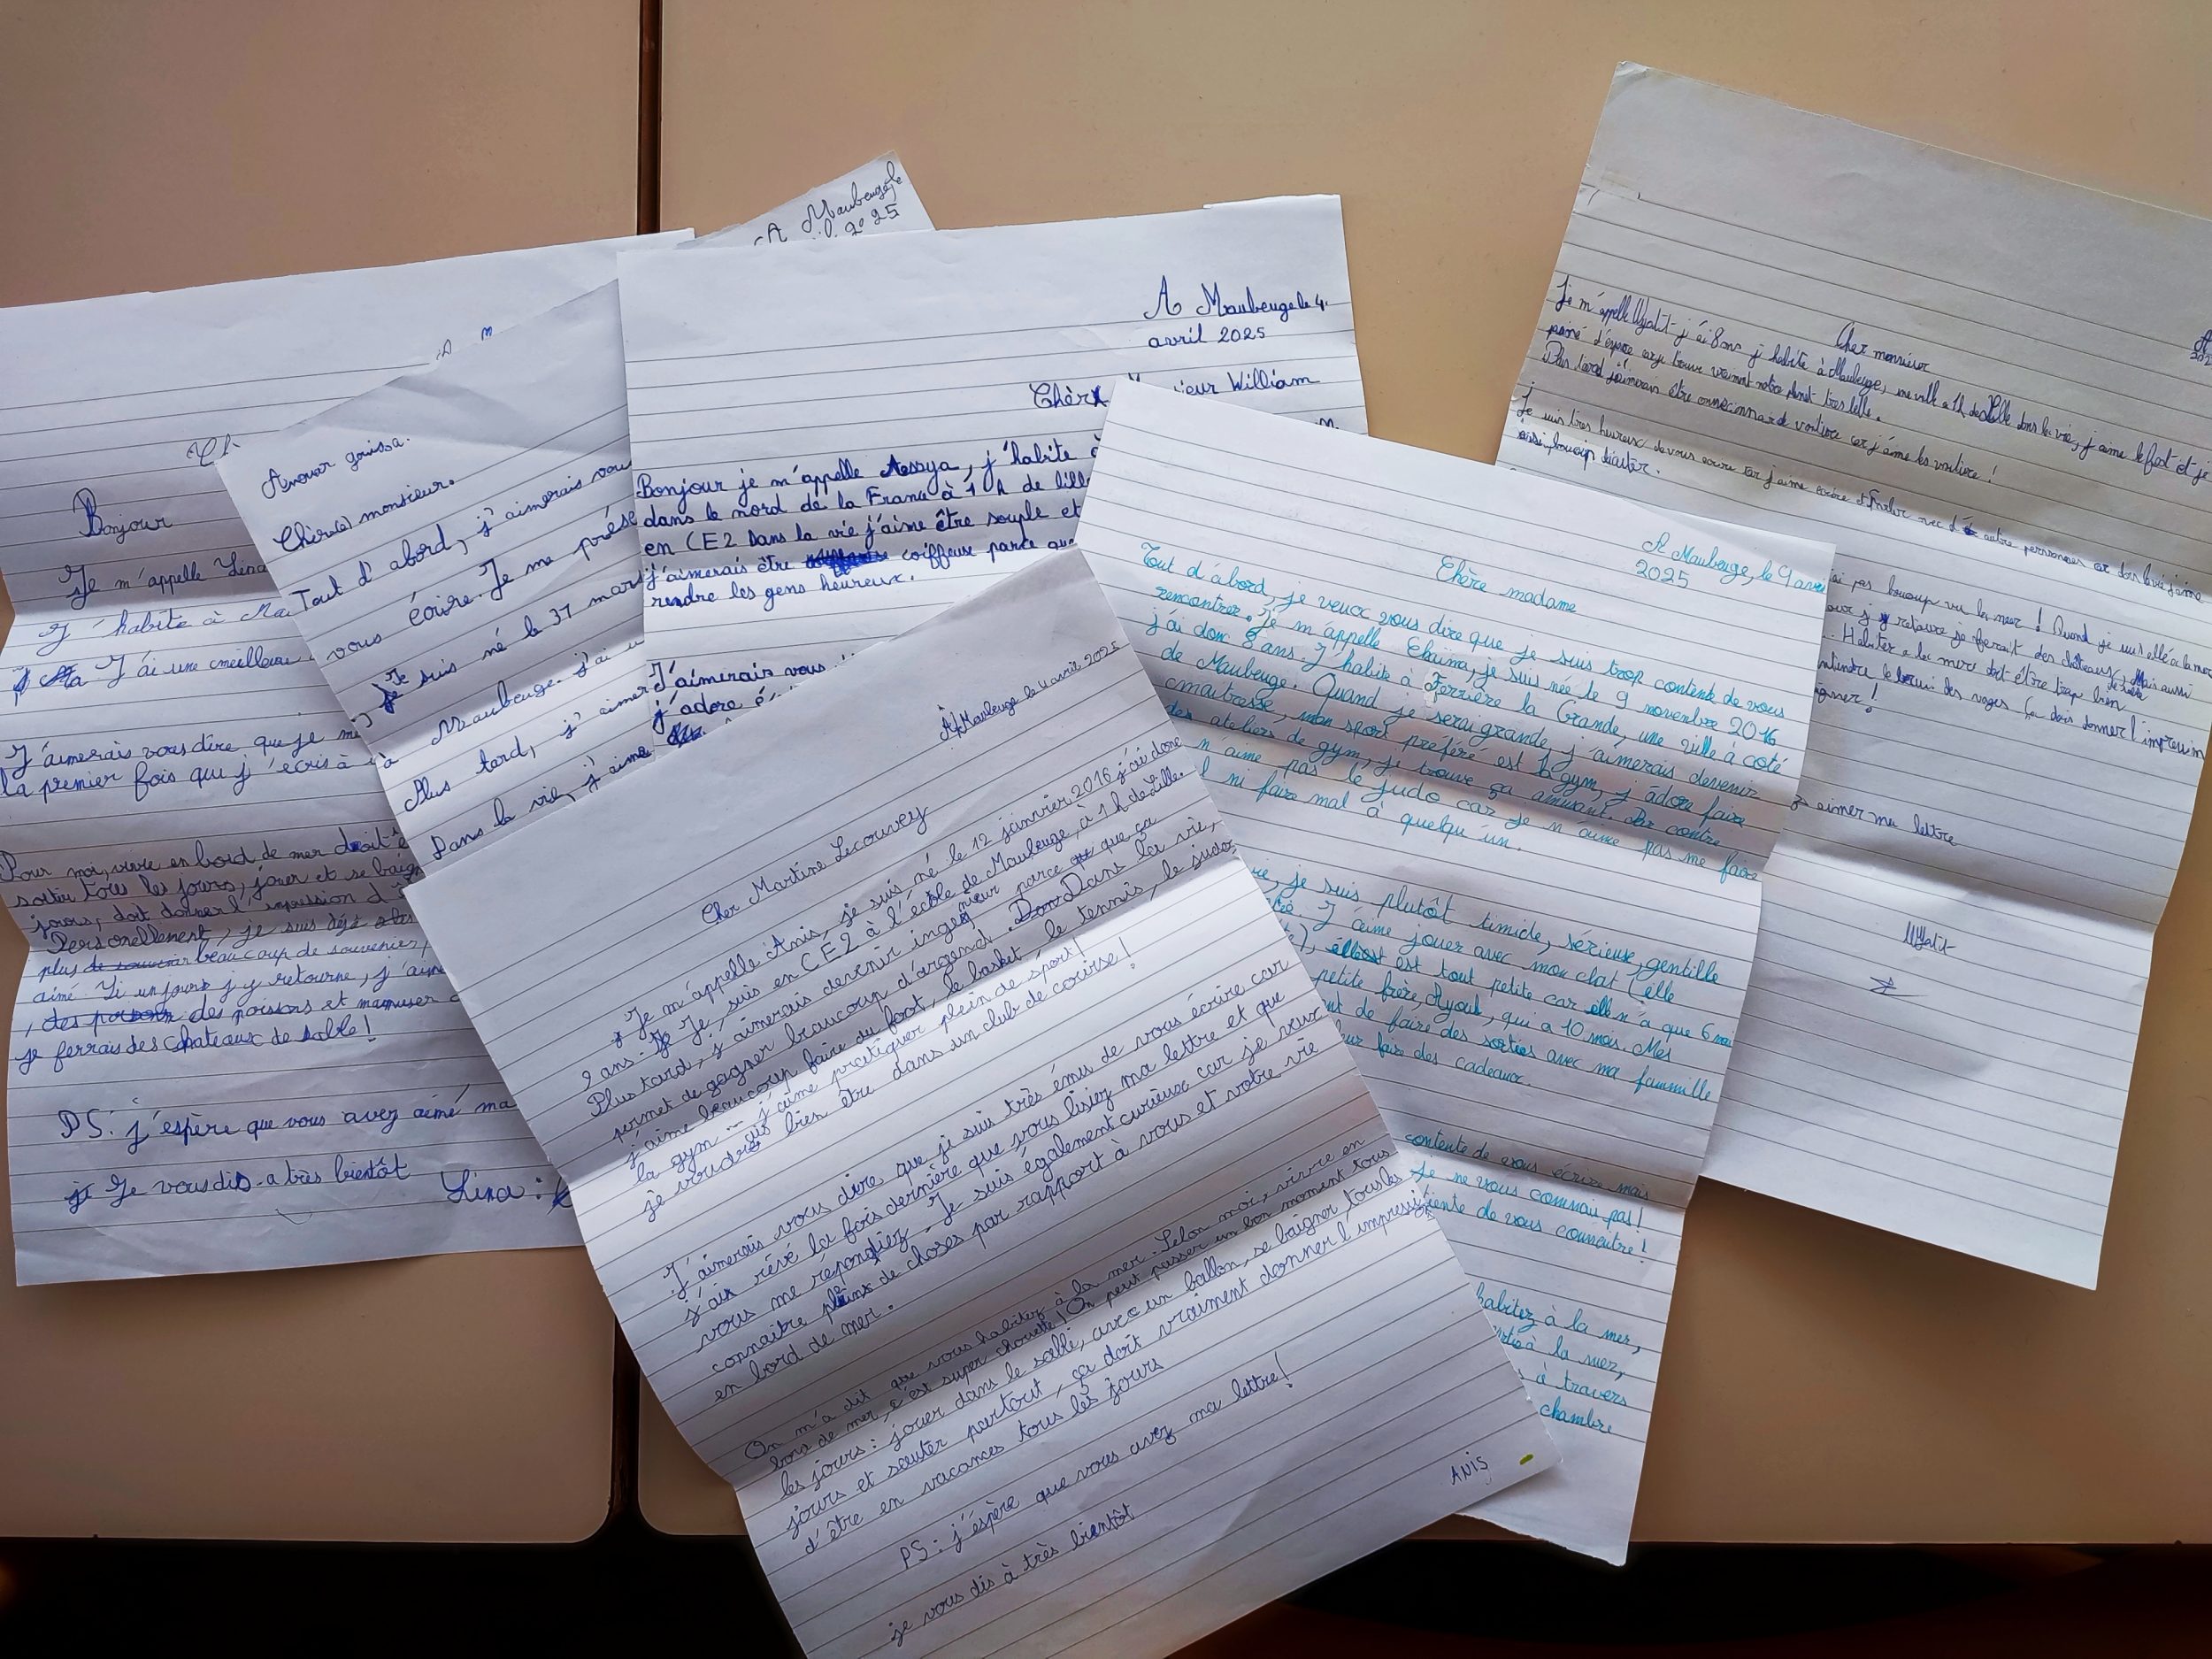 A Maubeuge, le
2025
Bonjour
Je m'appelle Lina
J'habite à Ma
J'ai une meilleure
J'aimerais vous dire que je
la premier fois que j'écris à
Pour moi, vivre en bord de mer doit
sortir tous les jours, jouer et se baign
jours, doit donner l'impression d'
Personellement, je suis déjà
plus de souvenir beaucoup de souvenirs
aimé. Si un jour j'y retourne, j'aime
, des poissons et
je ferrais des chateaux de sable!
PS: j'espère que vous avez aimé ma
je Je vous dis a très bientôt
Lina:
Anouar
Chèr(e) monsieur.
Tout d'abord, j'aimerais vous
vous écrire. Je me prése
Je suis né le 31 mars
à Maubeuge. j'ai u
Plus tard, j'aimer
Dans la vie, j'aime
A Maubeuge le 4
avril 2025
Chèr
ieur William
Bonjour je m'appelle Assya, j'habite à
dans le nord de la France à 1 h de lill
en CE2 Dans la vie j'aime être souple et
j'aimerais être coiffeuse parce que
rendre les gens heureux.
J'aimerais vous
j'adore é
A Maubeuge le 4 avril 2025
Cher Martine Lecouvey
Je m'appelle Anis, je suis né le 12 janvier 2016 j'ai donc
9 ans. Je Je suis en CE2 à l'école de Maubeuge, à 1 h de Lille.
Plus tard, j'aimerais devenir ingegnieur parce que ça
permet de gagner beaucoup d'argend. Don Dans la vie,
j'aime beaucoup faire du foot, le basket, le tennis, le judo
la gym... j'aime practiquer plein de sport!
je voudrais bien être dans un club de course!
J'aimerais vous dire que je suis très émus de vous écrire car
j'ais rêvé la fois dernière que vous lisiez ma lettre et que
vous me répondiez. Je suis également curieux car je veux
connaitre pleins de choses par rapport à vous et votre vie
en bord de mer.
On m'a dit que vous habitez à la mer. Selon moi, vivre en
bors de mer, c'est super chouette! On peut passer un bon moment tous
les jours: jouer dans le sable, avec un ballon, se baigner tous les
jours et sauter partout, ça doit vraiment donner l'impressi
d'être en vacances tous les jours
PS: j'espère que vous avez ma lettre!
je vous dis à très bientôt
ANIS
A Maubeuge, le 4 avri
2025
Chère madame
Tout d'abord, je veux vous dire que je suis trop contente de vous
rencontrer. Je m'appelle Chaïma, je suis née le 9 novembre 2016
j'ai donc 8 ans. J'habite à Ferrière la Grande, une ville à coté
de Maubeuge. Quand je serai grande, j'aimerais devenir
maitresse, mon sport préféré est la gym, j'adore faire
des ateliers de gym, je trouve ça amusant. Par contre,
n'aime pas le judo car je n'aime pas me faire
l ni faire mal à quelqu'un.
ie, je suis plutôt timide, sérieuse, gentille
J'aime jouer avec mon chat (elle
est tout petite car elle n'a que 6 moi
petite frère, Ayoub, qui a 10 mois. Mes
nt de faire des sorties avec ma fammille
ur faire des cadeaux.
contente de vous écrire mais
je ne vous connais pas!
iente de vous connaitre!
habitez à la mer,
à la mer,
à travers
chambre
Cher monsieur
Je m'appelle Wyalit j'ai 8 ans j'habite à Maubeuge, une ville a 1h de Lille dans la vie, j'aime le foot et je
Plus tard j'aimerais être de voiture car j'aime les voiture!
Je suis tres heureux de vous ecrire car j'aime écrire et parler avec d' autre personnes car dans la vie j'aime
aussi boucoup
ai pas boucoup vu la mer! Quand je suis allé a la mer
our j'y retourne je ferait des châteaux, Mais aussi
. Habiter a la mer doit être trop bien
ntendre le bruit des vages ça dois donner l'impression
aimer ma lettre
Wyalit